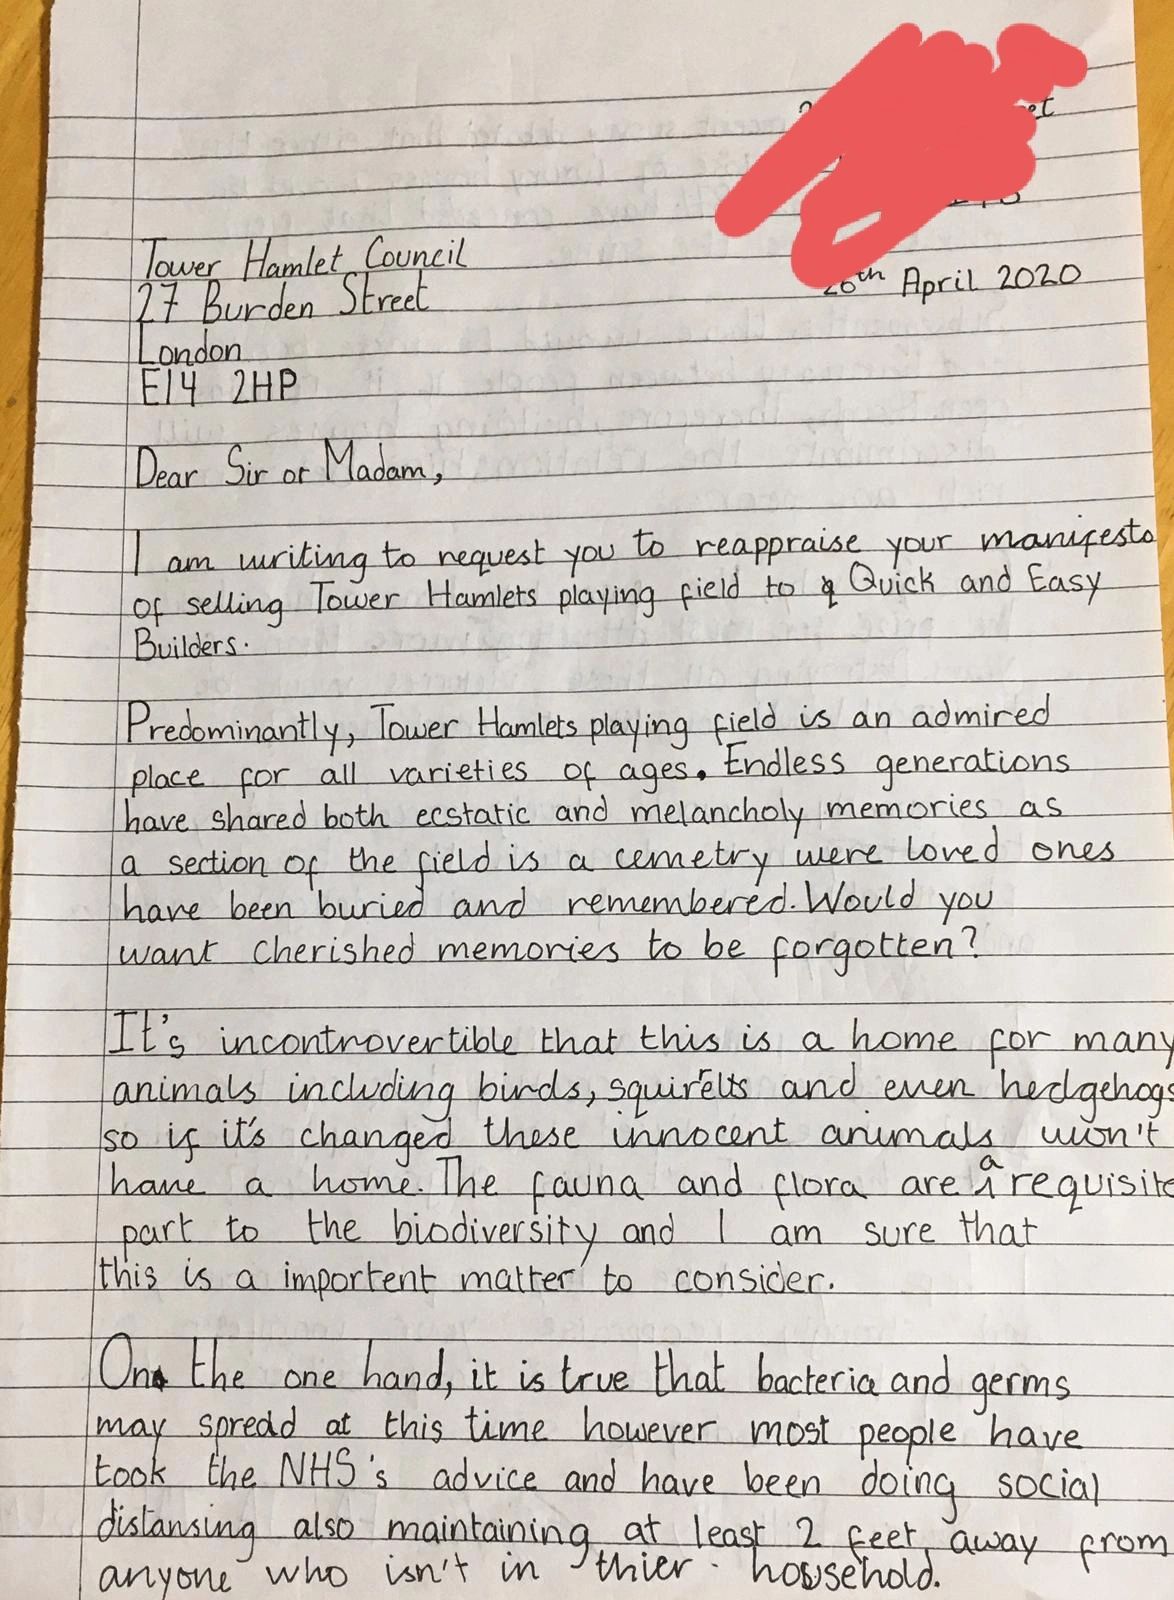 April 2020
Tower Hamlet Council
27 Burden Street
London
E14 2HP
Dear Sir or Madam,
I am writing to request you to reappraise your manifesto
of selling Tower Hamlets playing field to Quick and Easy
Builders.
Predominantly, Tower Hamlets playing field is an admired
place for all varieties of ages. Endless generations
have shared both ecstatic and melancholy memories as
a section of the field is a cemetry were loved ones
have been buried and remembered. Would you
want cherished memories to be forgotten?
It's incontrovertible that this is a home for many
animals including birds, and even hedgehogs
so if it's changed these innocent animals won't
have a home. The fauna and flora are a requisite
part to the biodiversity and I am sure that
this is a importent matter to consider.
On the one hand, it is true that bacteria and germs
may spread at this time however most people have
took the NHS's advice and have been doing social
distansing also maintaining at least 2 feet away from
anyone who isn't in thier household.